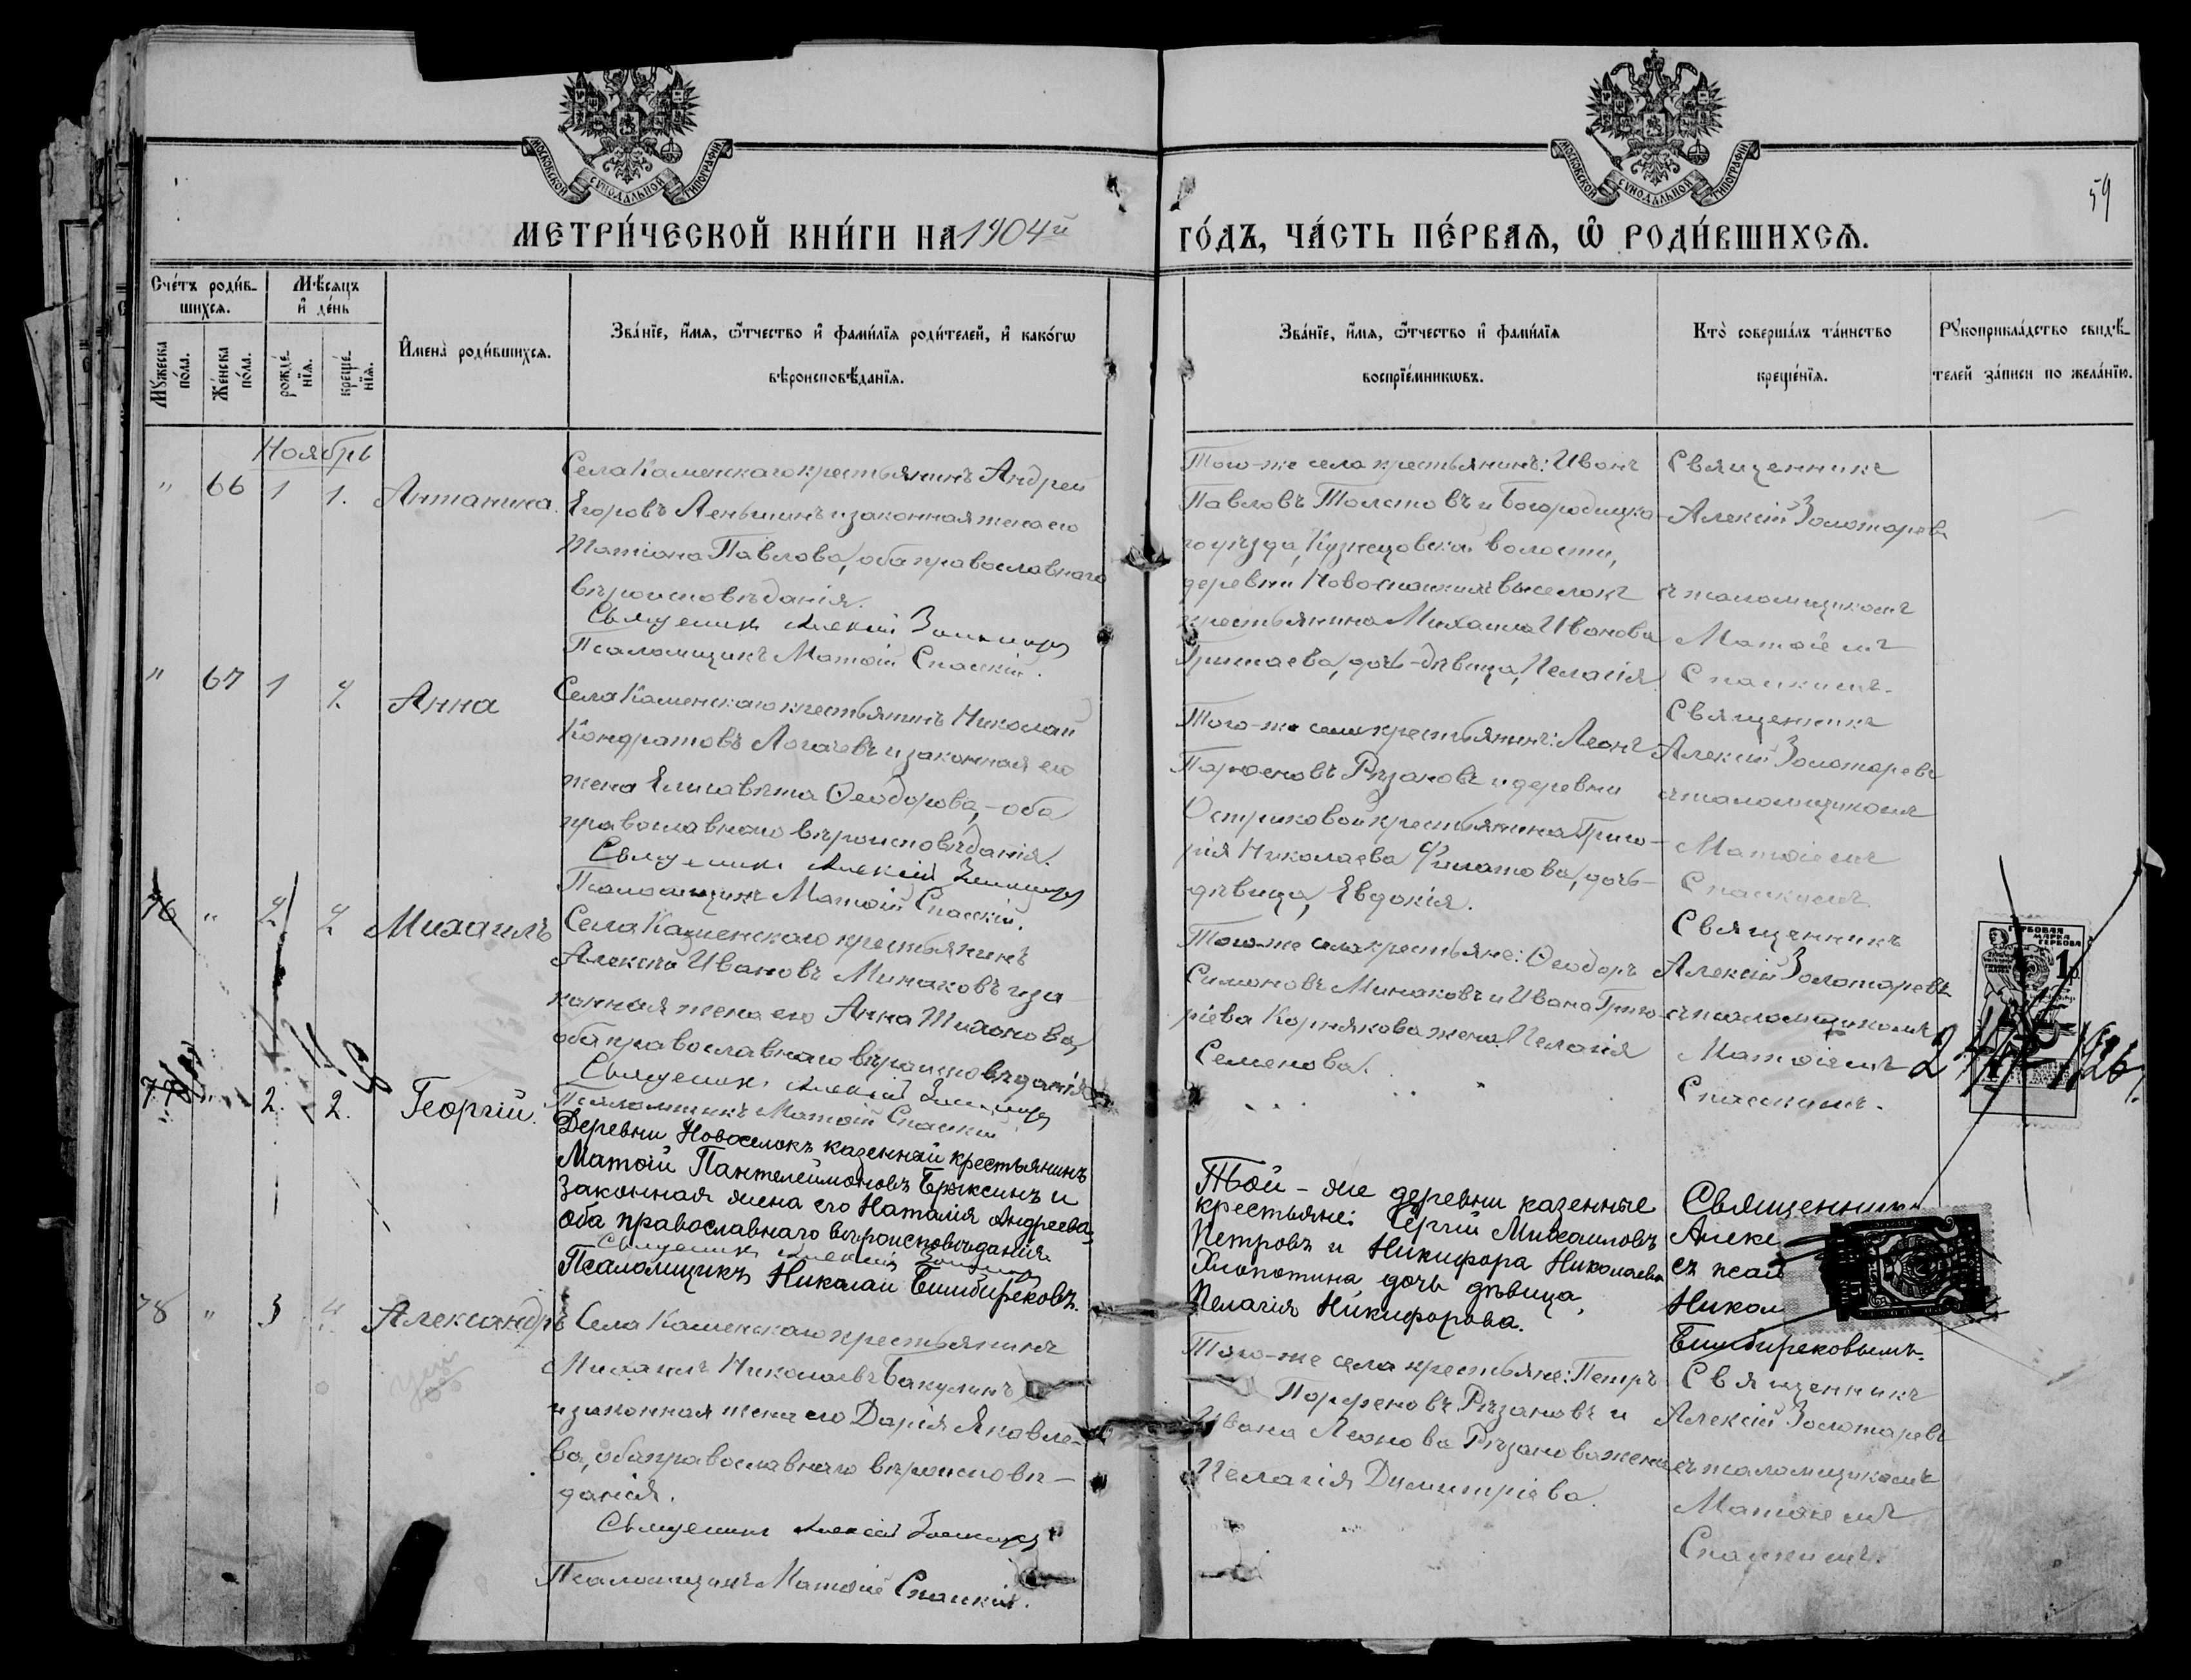 МОСКОВСКОЙ СѴНОДАЛЬНОЙ ТИПОГРАФІИ
МОСКОВСКОЙ СѴНОДАЛЬНОЙ ТИПОГРАФІИ
59
МЕТРИ́ЧЕСКОЙ КНИ́ГИ НА 1904й
ГО́ДЪ, ЧА́СТЬ ПЕ́РВАѦ, Ѽ РОДИ́ВШИХСѦ.
Сче́тъ роди́в-
шихсѧ.
Мꙋжеска
по́ла.
Же́нска
по́ла.
Мѣ́сяцъ
и҆ де́нь
рожде́-
нїѧ.
креще́-
нїѧ.
И҆мена̀ роди́вшихсѧ.
Зва́нїе, и҆́мѧ, ѻ҆́тчество и҆ фами́лїѧ роди́телей, и҆ како́гѡ
вѣроисповѣ́данїѧ.
Зва́нїе, и҆́мѧ, ѻ҆́тчество и҆ фами́лїѧ
воспрїе́мникѡвъ.
Кто̀ соверша́лъ та́инство
креще́нїѧ.
Рꙋкоприкла́дство свидѣ́-
телей за́писи по жела́нїю.
Ноябрь
" 66 1 1. Антанина.
Села Каменскаго крестьянинъ Андрей
Егоровъ Леньшинъ и законная жена его
Татіана Павлова, оба православнаго
вѣроисповѣданія.
Священникъ Алексій
Псаломщикъ Матѳій Спасскій.
Того-же села крестьянинъ: Иванъ
Павловъ Толстовъ и Богородицка-
го уѣзда, Кузнецовской волости,
деревни Ново-спасскихъ выселокъ
крестьянина Михаила Иванова
дочь-дѣвица, Пелагія.
Священникъ
Алексій Золотаревъ
съ псаломщикомъ
Матѳіемъ
Спасскимъ.
" 67 1 2 Анна
Села Каменскаго крестьянинъ Николай
Кондратовъ Логачевъ и законная его
жена Елисавета Ѳеодорова, - оба
православнаго вѣроисповѣданія.
Священникъ Алексій
Псаломщикъ Матѳій Спасскій.
Того-же села крестьянинъ: Леонъ
Парѳеновъ Рѣзановъ и деревни
Остриковой крестьянина Григо-
рія Николаева Филатова, дочь-
дѣвица, Евдокія.
Священникъ
Алексій Золотаревъ
съ псаломщикомъ
Матѳіемъ
Спасскимъ.
76 " 2 2 Михаилъ
Села Каменскаго крестьянинъ
Алексѣй Ивановъ Минаковъ и за-
конная жена его Анна Тихонова,
оба православнаго вѣроисповѣданія.
Священникъ Алексій
Псаломщикъ Матѳій Спасскій.
Того-же села крестьяне: Ѳеодоръ
Симоновъ Минаковъ и Ивана Григо-
ріева Корнякова жена Пелагія
Семенова.
Священникъ
Алексій Золотаревъ
съ псаломщикомъ
Матѳіемъ
Спасскимъ.
ГЕРБОВАЯ
МАРКА
1р
77 " 2. 2. Георгій.
Деревни Новоселокъ казенный крестьянинъ
Матѳій Пантелеймоновъ Брыксинъ и
законная жена его Наталія Андреева,
оба православнаго вѣроисповѣданія.
Священникъ Алексій
Псаломщикъ Николай Бимбирековъ.
Той-же деревни казенные
крестьяне: Сергій Михаиловъ
Петровъ и Никифора Николаева
Хлопотина дочь дѣвица,
Пелагія Никифорова.
Священник
Алекс
съ псал
Никол
Бимбирековымъ.
78 " 3 4 Александръ
Села Каменскаго крестьянинъ
Михаилъ Николаевъ Бакулинъ
и законная жена его Дарія Яковле-
ва, оба православнаго вѣроисповѣ-
данія.
Священникъ Алексій
Псаломщикъ Матѳій Спасскій.
Того-же села крестьяне: Петръ
Парѳеновъ Рѣзановъ и
Ивана Леонова Рѣзанова жена
Пелагія Димитріева.
Священникъ
Алексій Золотаревъ
съ псаломщикомъ
Матѳіемъ
Спасскимъ.